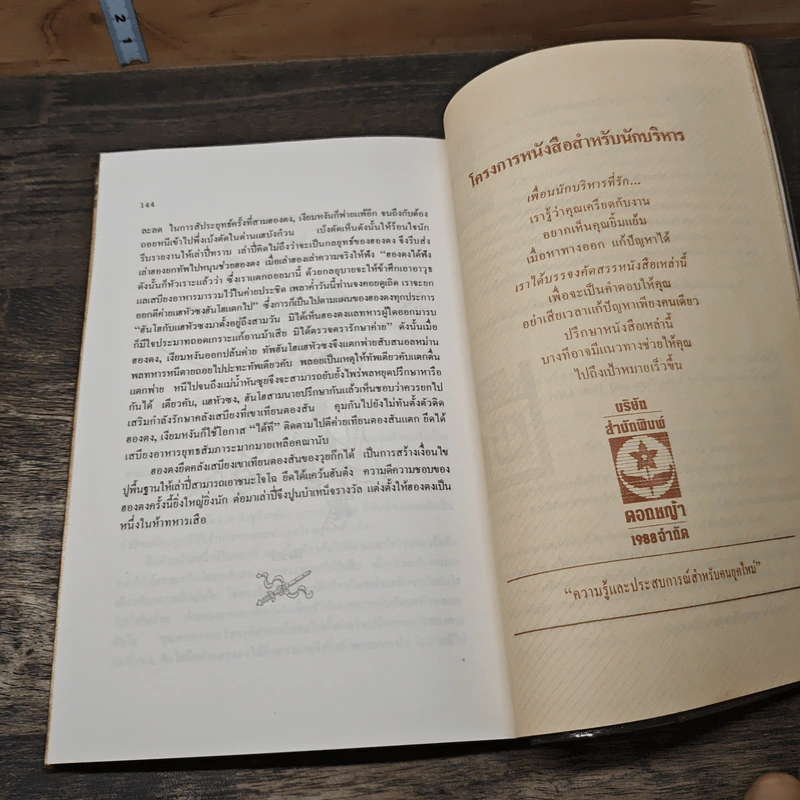 2
1
144
ละลด ในการสัประยุทธ์ครั้งที่สามฮองตง, เงียมหงันก็พ่ายแพ้อีก จนถึงกับต้อง
ถอยหนีเข้าไปพึ่งเบ้งตัดในด่านแฮบังก๋วน เบ้งตัดเห็นดังนั้นให้ร้อนใจนัก
รีบรายงานให้เล่าปี่ทราบ เล่าปี่คิดไม่ถึงว่าจะเป็นกลยุทธ์ของฮองตง จึงรีบส่ง
เล่าฮองยกทัพไปหนุนช่วยฮองตง เมื่อเล่าฮองเล่าความจริงให้ฟัง “ฮองตงได้ฟัง
ดังนั้นก็หัวเราะแล้วว่า ซึ่งเราแตกถอยมานี้ ด้วยกลอุบายจะให้ข้าศึกเอาอาวุธ
และเสบียงอาหารมารวมไว้ในค่ายประชิด เพลาค่ำวันนี้ท่านจงคอยดูเถิด เราจะยก
ออกตีค่ายแฮหัวซงฮันโฮแตกไป” ซึ่งการก็เป็นไปตามแผนของฮองตงทุกประการ
“ฮันโฮกับแฮหัวซงมาตั้งอยู่ถึงสามวัน มิได้เห็นฮองตงแลทหารผู้ใดออกมารบ
ก็มีใจประมาทถอดเกราะแก้อานม้าเสีย มิได้ตรวจตรารักษาค่าย” ดังนั้นเมื่อ
ฮองตง, เงียมหงันออกปล้นค่าย ทัพฮันโฮแฮหัวซงจึงแตกพ่ายสับสนอลหม่าน
พลทหารหนีตายถอยไปปะทะทัพเตียวคับ พลอยเป็นเหตุให้ทัพเตียวคับแตกตื่น
แตกพ่าย หนีไปจนถึงแม่น้ำหันซุยจึงจะสามารถยับยั้งไพร่พลหยุดปรึกษาหารือ
กันได้ เตียวคับ, แฮหัวซง, ฮันโฮสามนายปรึกษากันแล้วเห็นชอบว่าควรยกไป
เสริมกำลังรักษาคลังเสบียงที่เขาเทียนตองสัน คุมกันไปยังไม่ทันตั้งตัวติด
ฮองตง, เงียมหงันก็ใช้โอกาส “ได้ที” ติดตามไปตีค่ายเทียนตองสันแตก ยึดได้
เสบียงอาหารยุทธสัมภาระมากมายเหลือคณานับ
ฮองตงยึดคลังเสบียงเขาเทียนตองสันของวุยก๊กได้ เป็นการสร้างเงื่อนไข
ปูพื้นฐานให้เล่าปี่สามารถเอาชนะโจโฉ ยึดได้แคว้นฮันต๋ง ความดีความชอบของ
ฮองตงครั้งนี้ยิ่งใหญ่ยิ่งนัก ต่อมาเล่าปี่จึงปูนบำเหน็จรางวัล แต่งตั้งให้ฮองตงเป็น
หนึ่งในห้าทหารเสือ
โครงการหนังสือสำหรับนักบริหาร
เพื่อนนักบริหารที่รัก...
เรารู้ว่าคุณเครียดกับงาน
อยากเห็นคุณยิ้มแย้ม
เมื่อหาทางออก แก้ปัญหาได้
เราได้บรรจงคัดสรรหนังสือเหล่านี้
เพื่อจะเป็นคำตอบให้คุณ
อย่าเสียเวลาแก้ปัญหาเพียงคนเดียว
ปรึกษาหนังสือเหล่านี้
บางทีอาจมีแนวทางช่วยให้คุณ
ไปถึงเป้าหมายเร็วขึ้น
บริษัท
สำนักพิมพ์
ดอกหญ้า
1988จำกัด
“ความรู้และประสบการณ์สำหรับคนยุคใหม่”